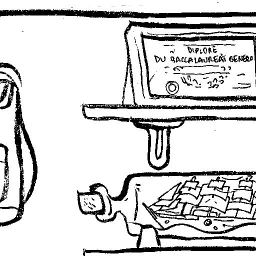 DIPLÔME
DU BACCALAUREAT GENERAL